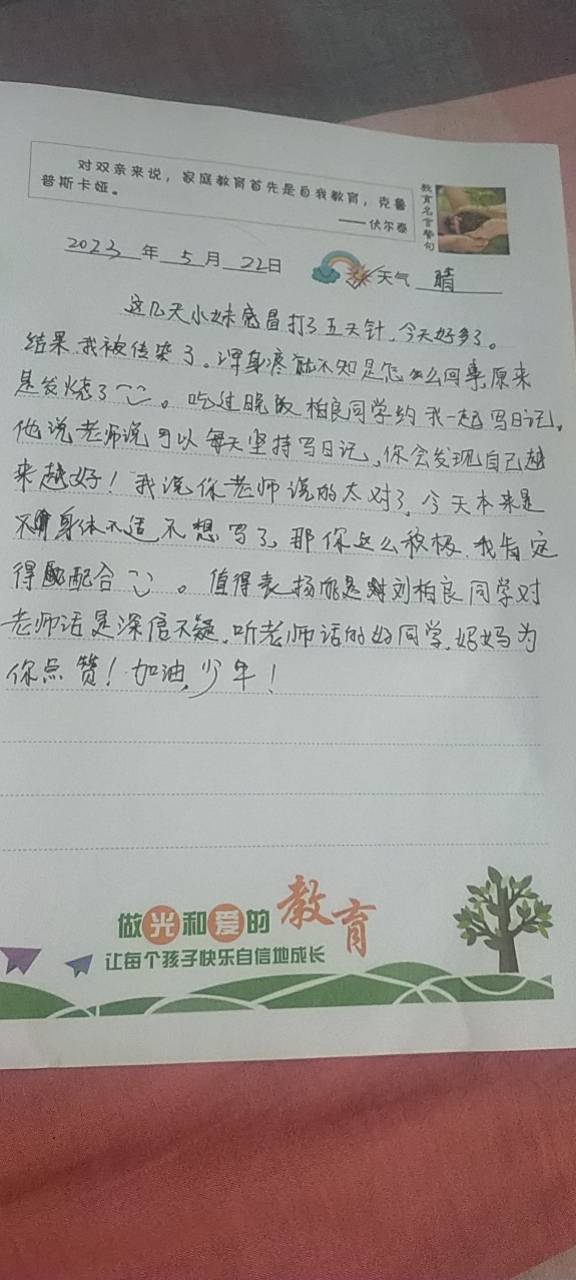 对双亲来说，家庭教育首先是自我教育，克鲁
普斯卡娅。
——伏尔泰
教育名言警句
2023年5月22日
天气 晴
这几天小妹感冒打了五天针，今天好多了。
结果我被传染了。浑身疼就不知是怎么回事，原来
是发烧了。吃过晚饭柏良同学约我一起写日记，
他说老师说可以每天坚持写日记，你会发现自己越
来越好！我说你老师说的太对了，今天本来是
身体不适不想写了，那你这么积极，我肯定
得配合。值得表扬的是刘柏良同学对
老师话是深信不疑，听老师话的好同学，妈妈为
你点赞！加油，少年！
做光和爱的教育
让每个孩子快乐自信地成长